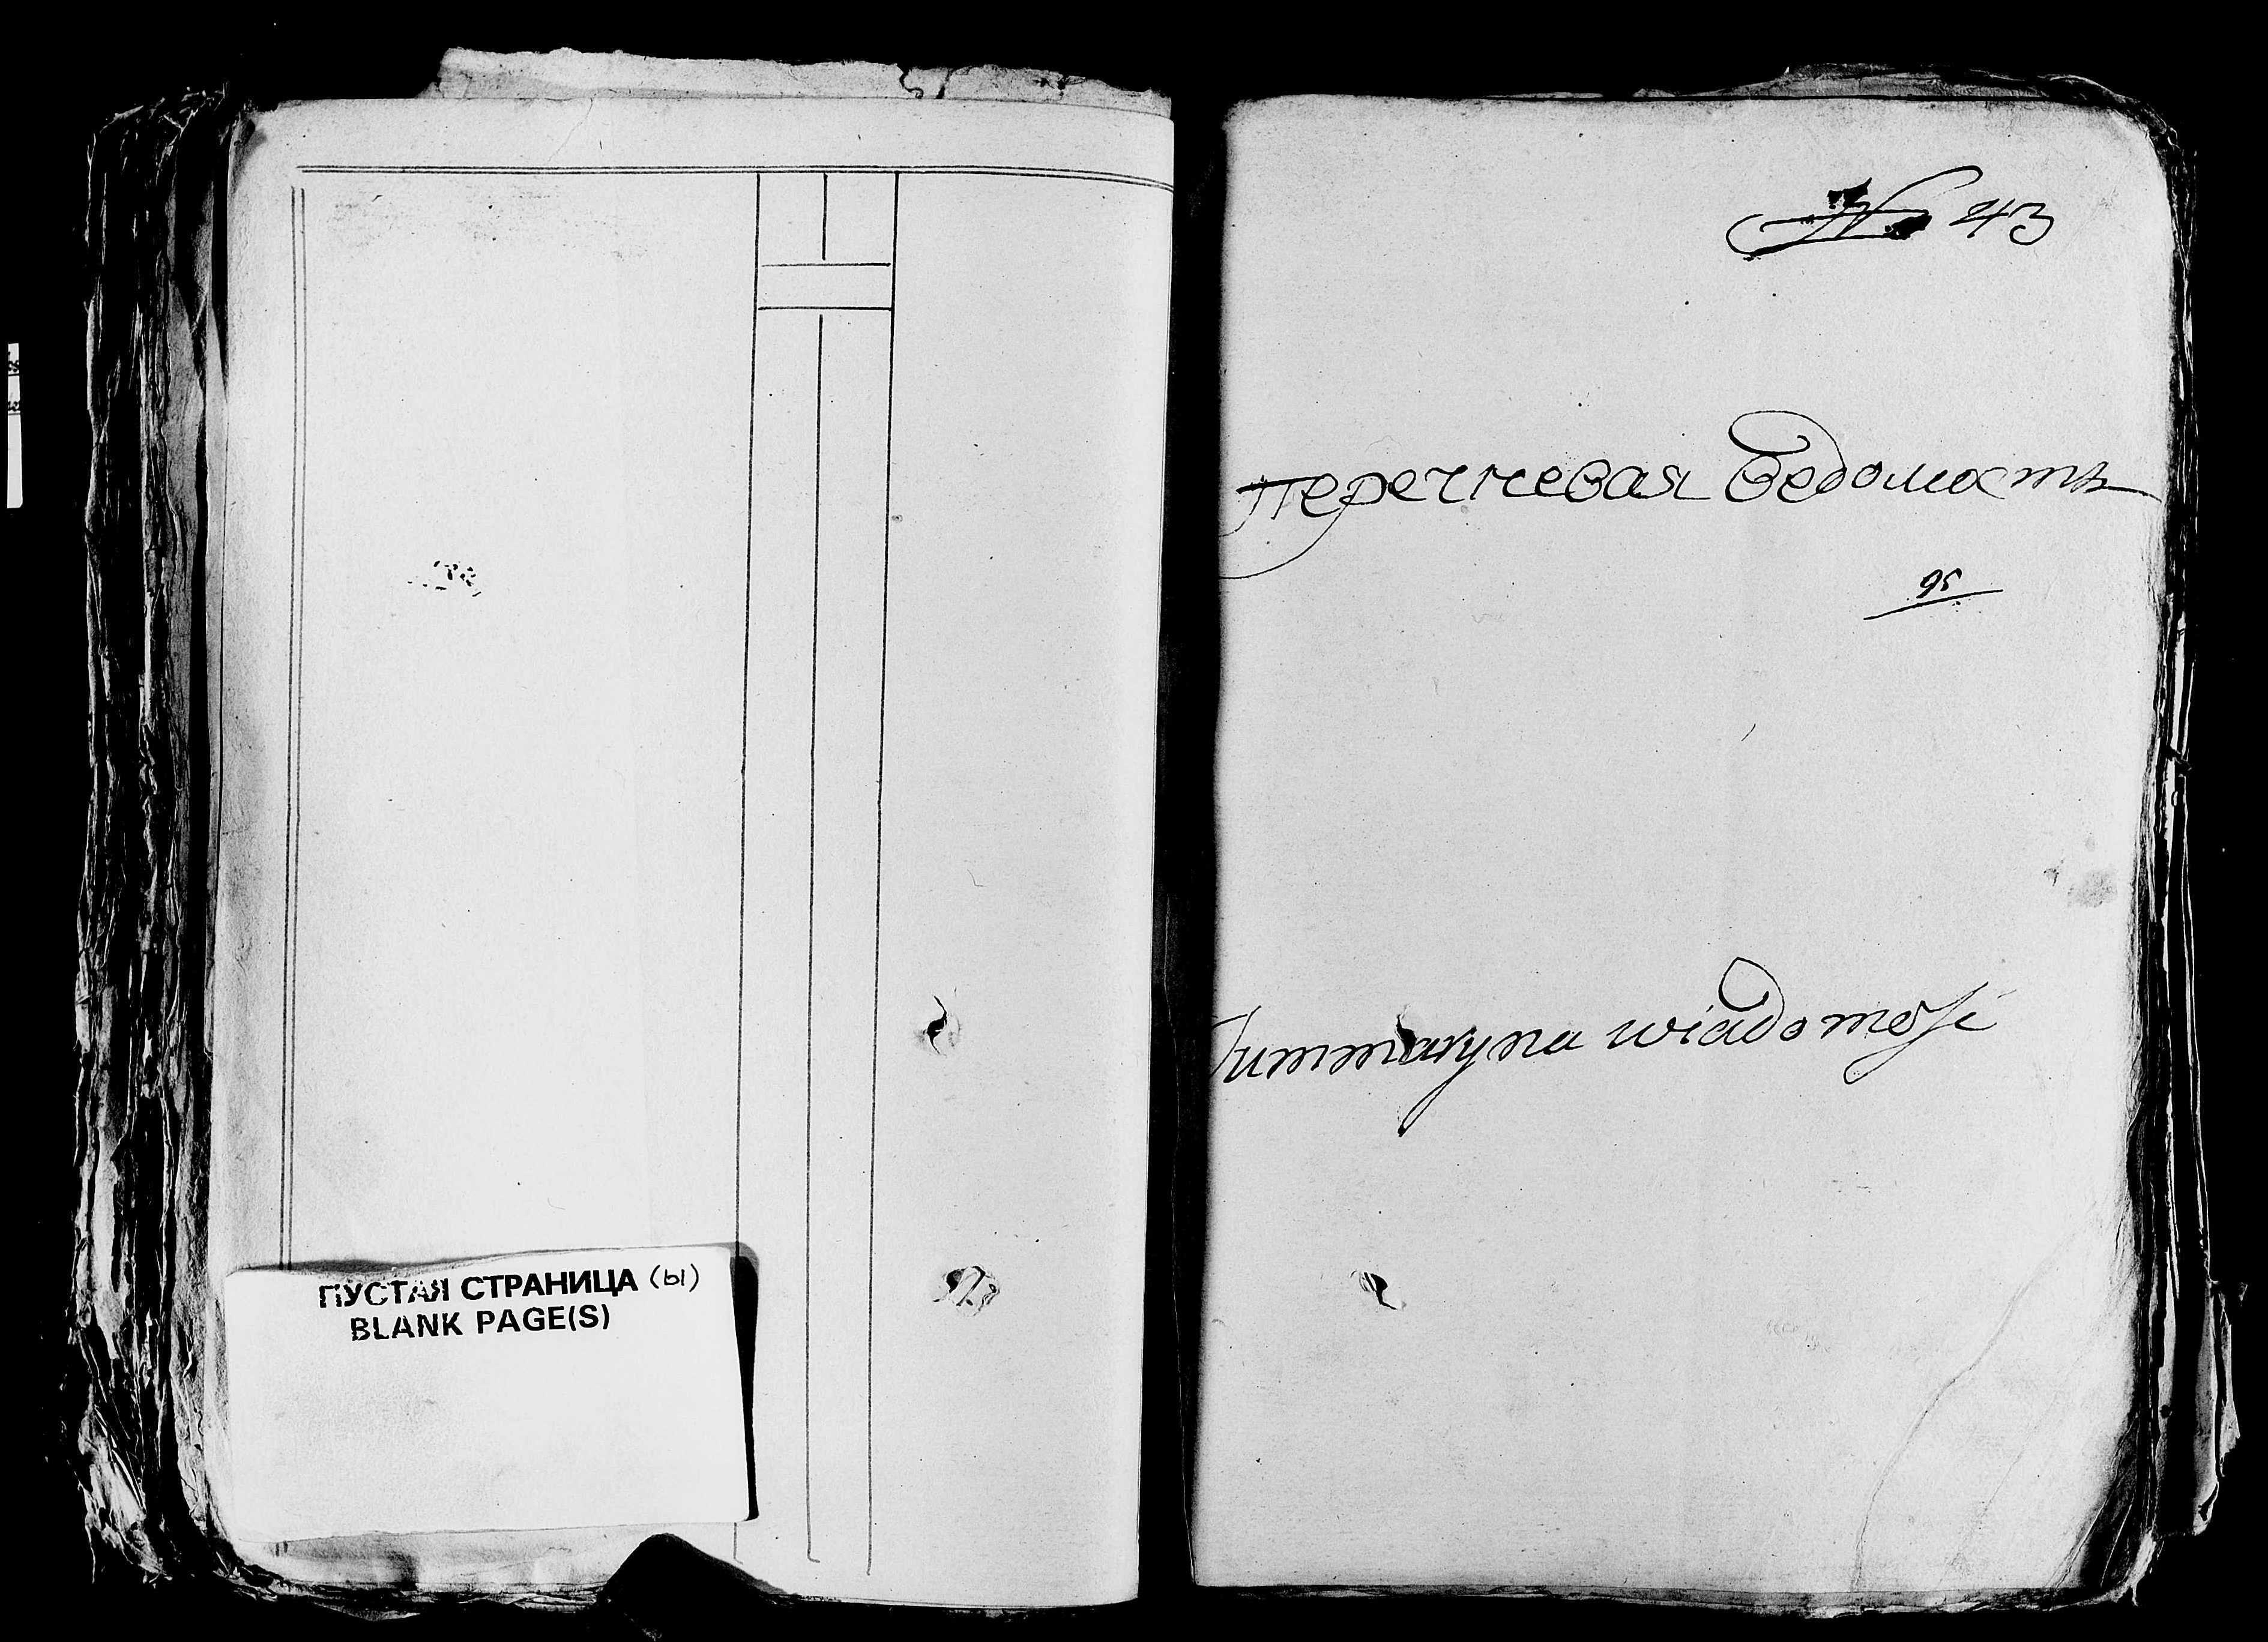 ПУСТАЯ СТРАНИЦА (Ы)
BLANK PAGE(S)
№ 43
Перечневая Ведомость
95
Summaryna wiadomość